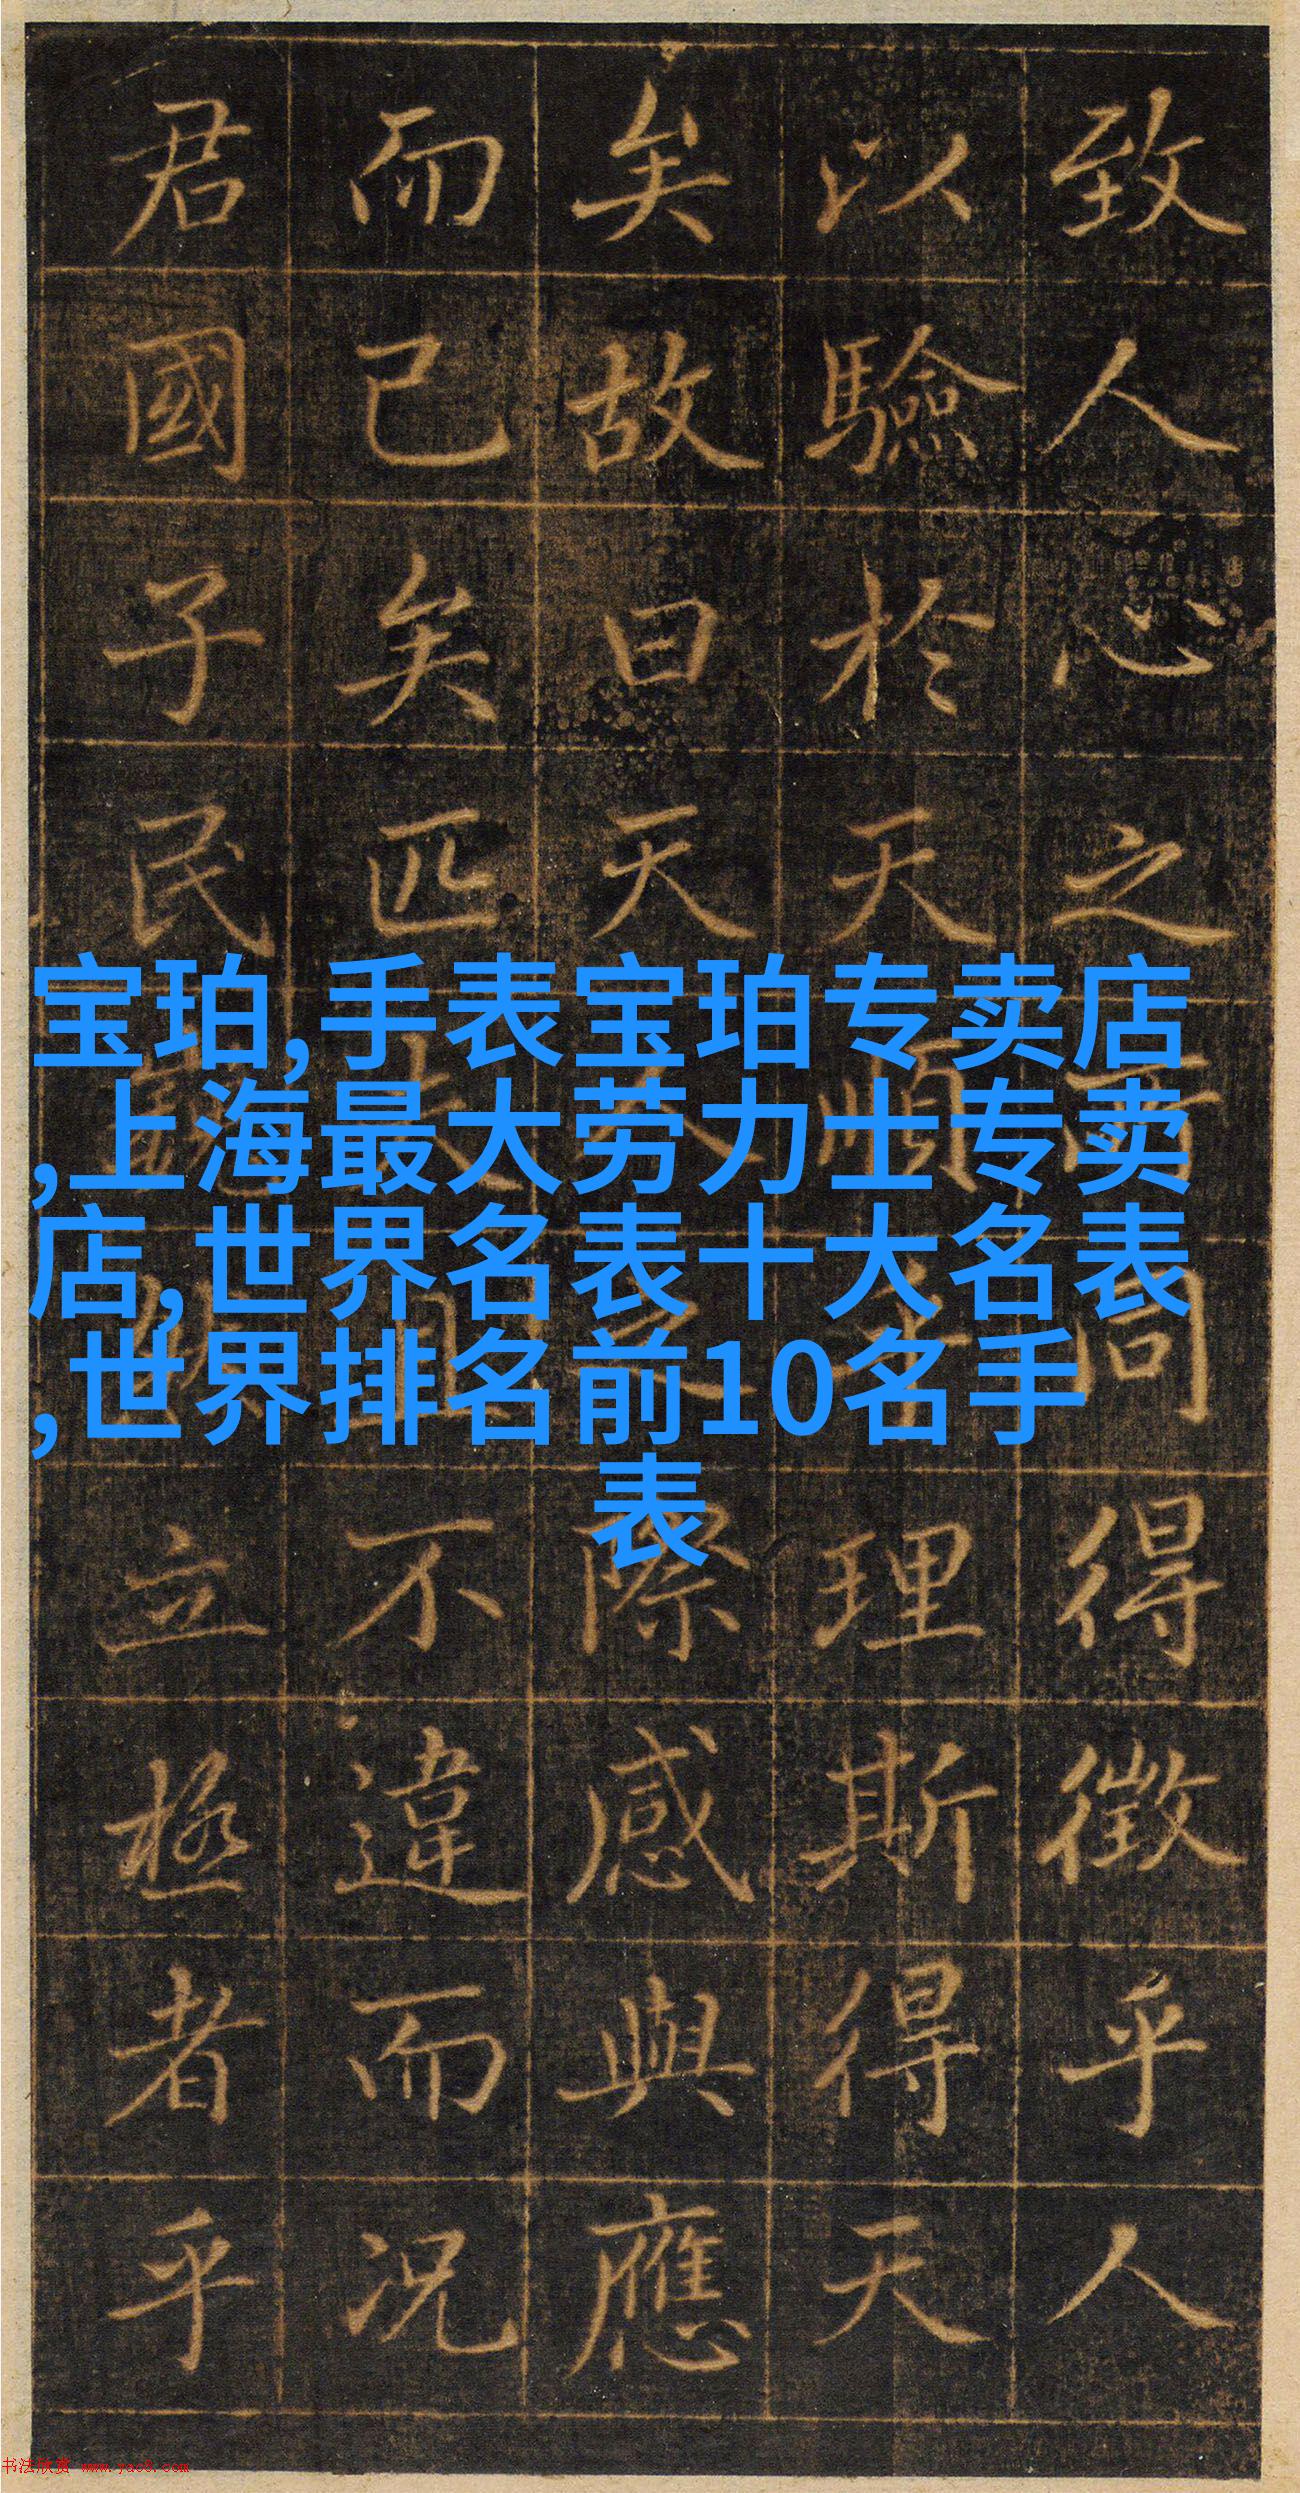 致人心之同得徵乎人
以驗於天順理斯得天
矣故曰天人之際感與應
而已矣匹夫且不違而況
君國子民立極者乎
宝珀,手表宝珀专卖店
,上海最大劳力士专卖
店,世界名表十大名表
,世界排名前10名手
表
书法欣赏 www.yac8.com